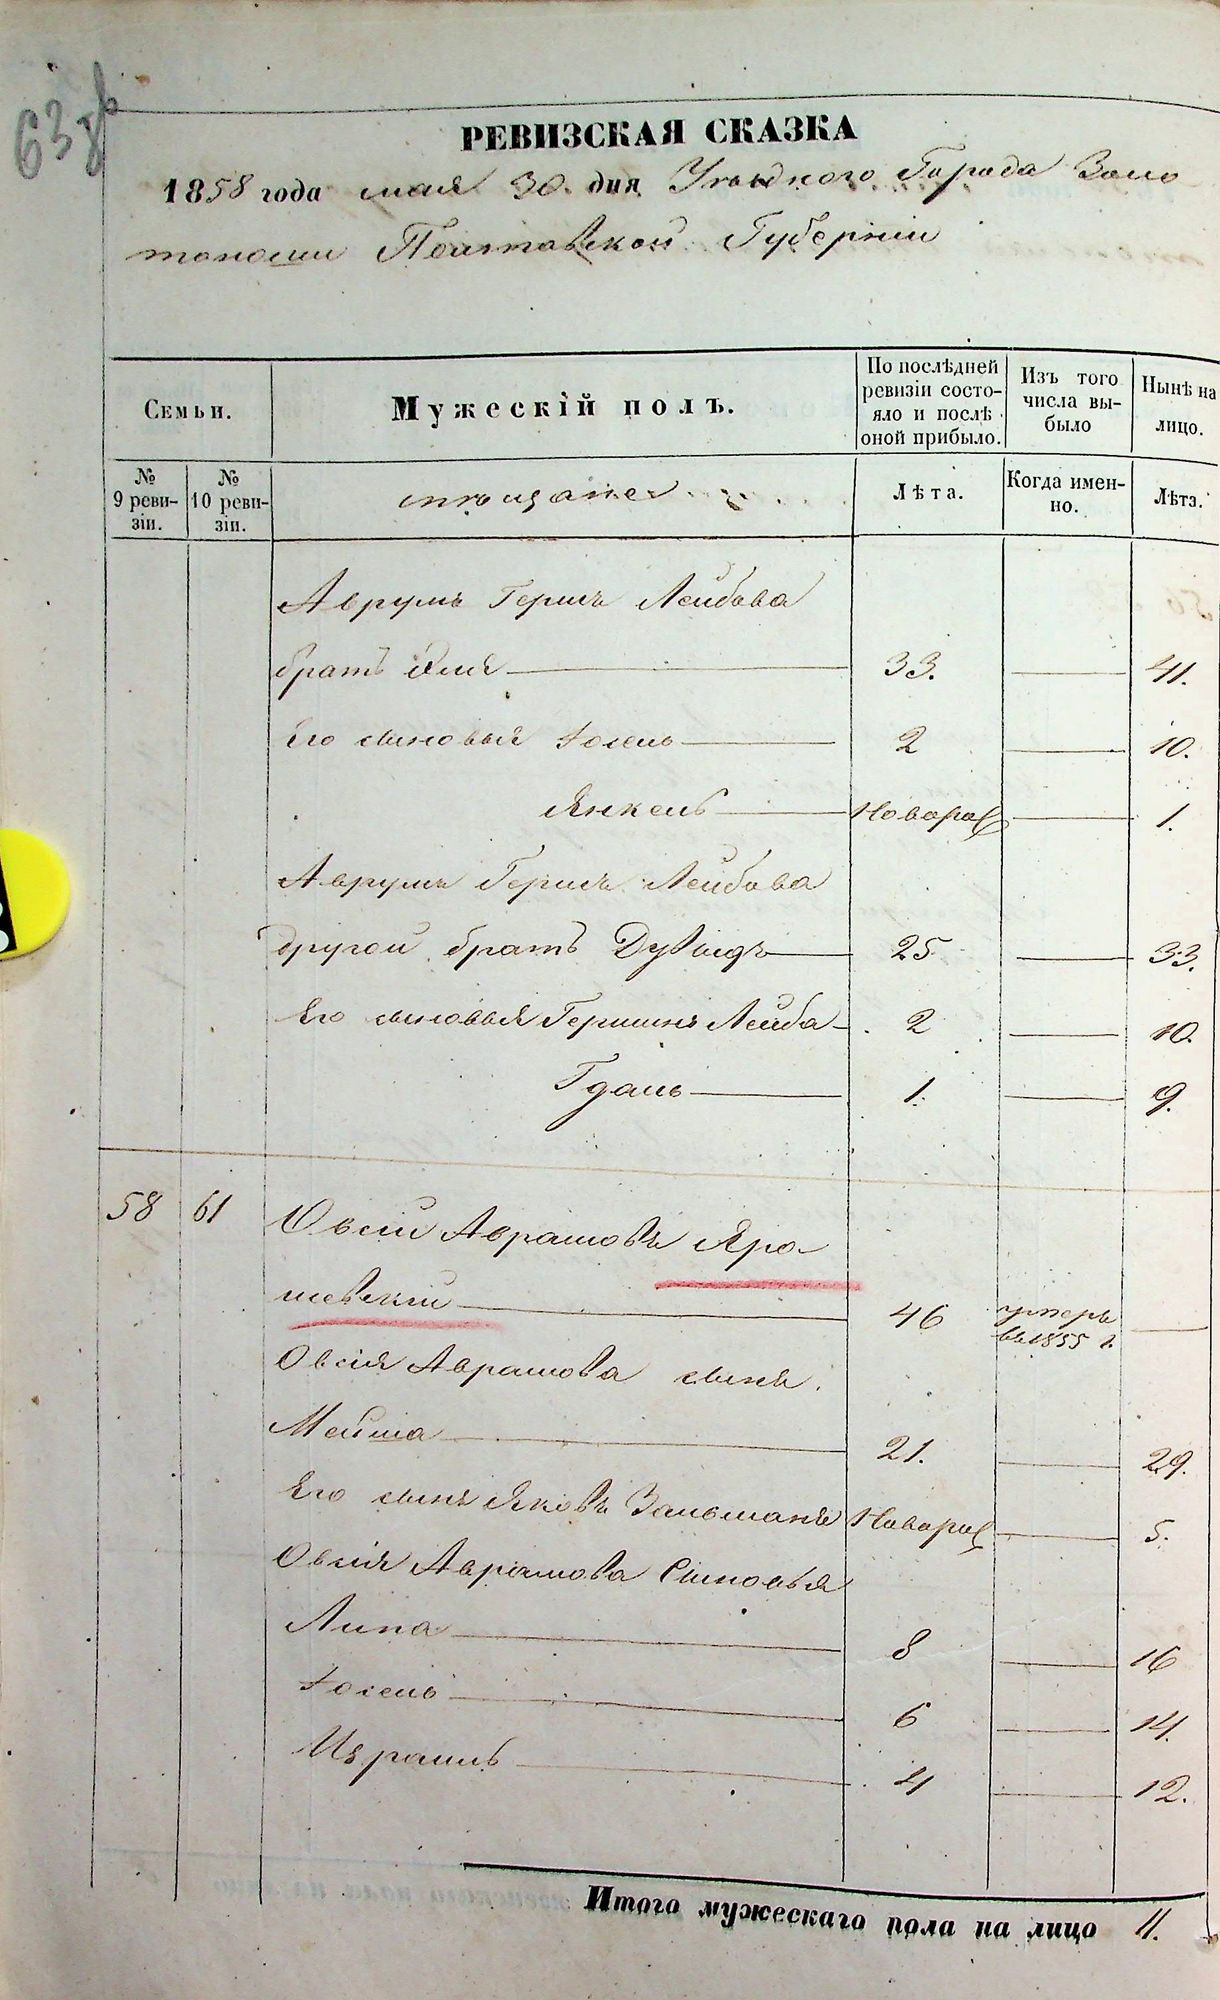 63 об
РЕВИЗСКАЯ СКАЗКА
1858 года мая 30 дня Уѣзднаго Города Золо
тоноши Полтавской Губерніи
Семьи.
Мужескій полъ.
По послѣдней ревизіи состояло и послѣ оной прибыло.
Изъ того числа выбыло
Нынѣ на лицо.
№ 9 ревизіи.
№ 10 ревизіи.
мѣщане
Лѣта.
Когда именно.
Лѣта.
Аврумъ Гершъ Лейбова
братъ 33. 41.
Его сыновья Іосель 2 10.
Янкель Новорож 1.
Аврумъ Гершъ Лейбова
другой братъ Дувидъ 25 33.
Его сыновья Гершинъ Лейба 2 10.
Гдаль 1 9.
58 61 Овсій Аврамовъ Яро-
шевскій 46 умеръ въ 1855 г.
Овсія Аврамова сынъ
Мейша 21. 29.
Его сынъ Яковъ Зальманъ Новорож 5.
Овсія Аврамова Сыновья
Липа 8 16
Іосель 6 14.
Израиль 4 12.
Итого мужескаго пола на лицо 11.